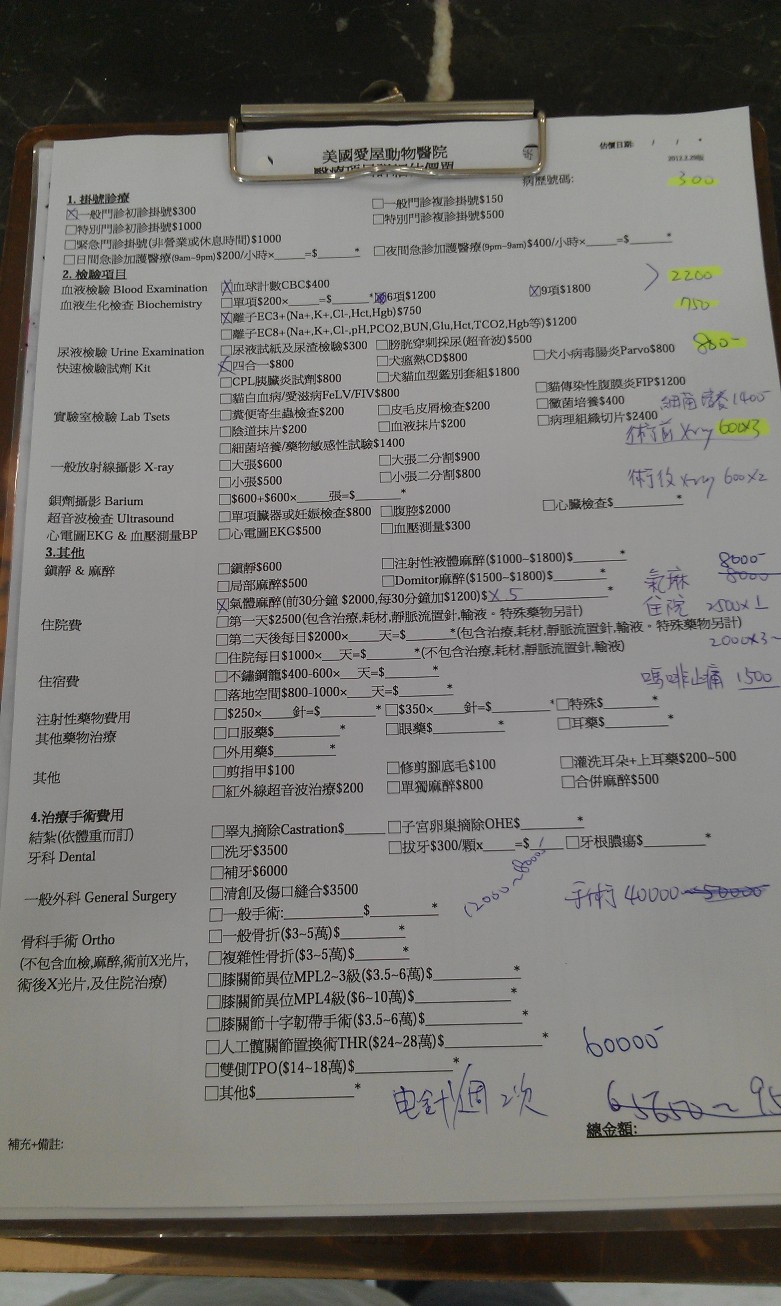 美國愛屋動物醫院
估價日期: / / *
病歷號碼:
300
1. 掛號診療
☒一般門診初診掛號$300 □一般門診複診掛號$150
□特別門診初診掛號$1000 □特別門診複診掛號$500
□緊急門診掛號(非營業或休息時間)$1000
□日間急診加護醫療(9am~9pm)$200/小時×____=$____* □夜間急診加護醫療(9pm~9am)$400/小時×____=$____*
2. 檢驗項目
血液檢驗 Blood Examination ☒血球計數CBC$400 2200
血液生化檢查 Biochemistry □單項$200×____=$____* 6項$1200 ☒9項$1800
☒離子EC3+(Na+,K+,Cl-,Hct,Hgb)$750 750
□離子EC8+(Na+,K+,Cl-,pH,PCO2,BUN,Glu,Hct,TCO2,Hgb等)$1200
尿液檢驗 Urine Examination □尿液試紙及尿渣檢驗$300 □膀胱穿刺採尿(超音波)$500
快速檢驗試劑 Kit ☒四合一$800 □犬瘟熱CD$800 □犬小病毒腸炎Parvo$800 800-
□CPL胰臟炎試劑$800 □犬貓血型鑑別套組$1800
□貓白血病/愛滋病FeLV/FIV$800 □貓傳染性腹膜炎FIP$1200
實驗室檢驗 Lab Tsets □糞便寄生蟲檢查$200 □皮毛皮屑檢查$200 □黴菌培養$400 細菌培養1400
□陰道抹片$200 □血液抹片$200 □病理組織切片$2400
□細菌培養/藥物敏感性試驗$1400 術前 X-ray 600×3
一般放射線攝影 X-ray □大張$600 □大張二分割$900
□小張$500 □小張二分割$800 術後 X-ray 600×2
鋇劑攝影 Barium □$600+$600×____張=$____*
超音波檢查 Ultrasound □單項臟器或妊娠檢查$800 □腹腔$2000 □心臟檢查$____*
心電圖EKG & 血壓測量BP □心電圖EKG$500 □血壓測量$300
3.其他
鎮靜 & 麻醉 □鎮靜$600 □注射性液體麻醉($1000~$1800)$____*
□局部麻醉$500 □Domitor麻醉($1500~$1800)$____* 氣麻 8000- 8000-
☒氣體麻醉(前30分鐘 $2000,每30分鐘加$1200)$×5____*
住院費 □第一天$2500(包含治療,耗材,靜脈流置針,輸液。特殊藥物另計) 住院 2500×1
□第二天後每日$2000×____天=$____*(包含治療,耗材,靜脈流置針,輸液。特殊藥物另計) 2000×3~
□住院每日$1000×____天=$____*(不包含治療,耗材,靜脈流置針,輸液)
住宿費 □不鏽鋼籠$400-600×____天=$____*
□落地空間$800-1000×____天=$____* 嗎啡止痛 1500
注射性藥物費用 □$250×____針=$____* □$350×____針=$____* □特殊$____*
其他藥物治療 □口服藥$____* □眼藥$____* □耳藥$____*
□外用藥$____*
其他 □剪指甲$100 □修剪腳底毛$100 □灌洗耳朵+上耳藥$200~500
□紅外線超音波治療$200 □單獨麻醉$800 □合併麻醉$500
4.治療手術費用
結紮(依體重而訂) □睪丸摘除Castration$____ □子宮卵巢摘除OHE$____*
牙科 Dental □洗牙$3500 □拔牙$300/顆x____=$____ □牙根膿瘍$____*
□補牙$6000
一般外科 General Surgery □清創及傷口縫合$3500
□一般手術:____$____* 手術 40000 ~50000
骨科手術 Ortho □一般骨折($3~5萬)$____*
(不包含血檢,麻醉,術前X光片, □複雜性骨折($3~5萬)$____*
術後X光片,及住院治療) □膝關節異位MPL2~3級($3.5~6萬)$____*
□膝關節異位MPL4級($6~10萬)$____*
□膝關節十字韌帶手術($3.5~6萬)$____*
□人工髖關節置換術THR($24~28萬)$____* 60000-
□雙側TPO($14~18萬)$____*
□其他$____* 电針/週 2次
65650~95
總金額:
補充+備註: